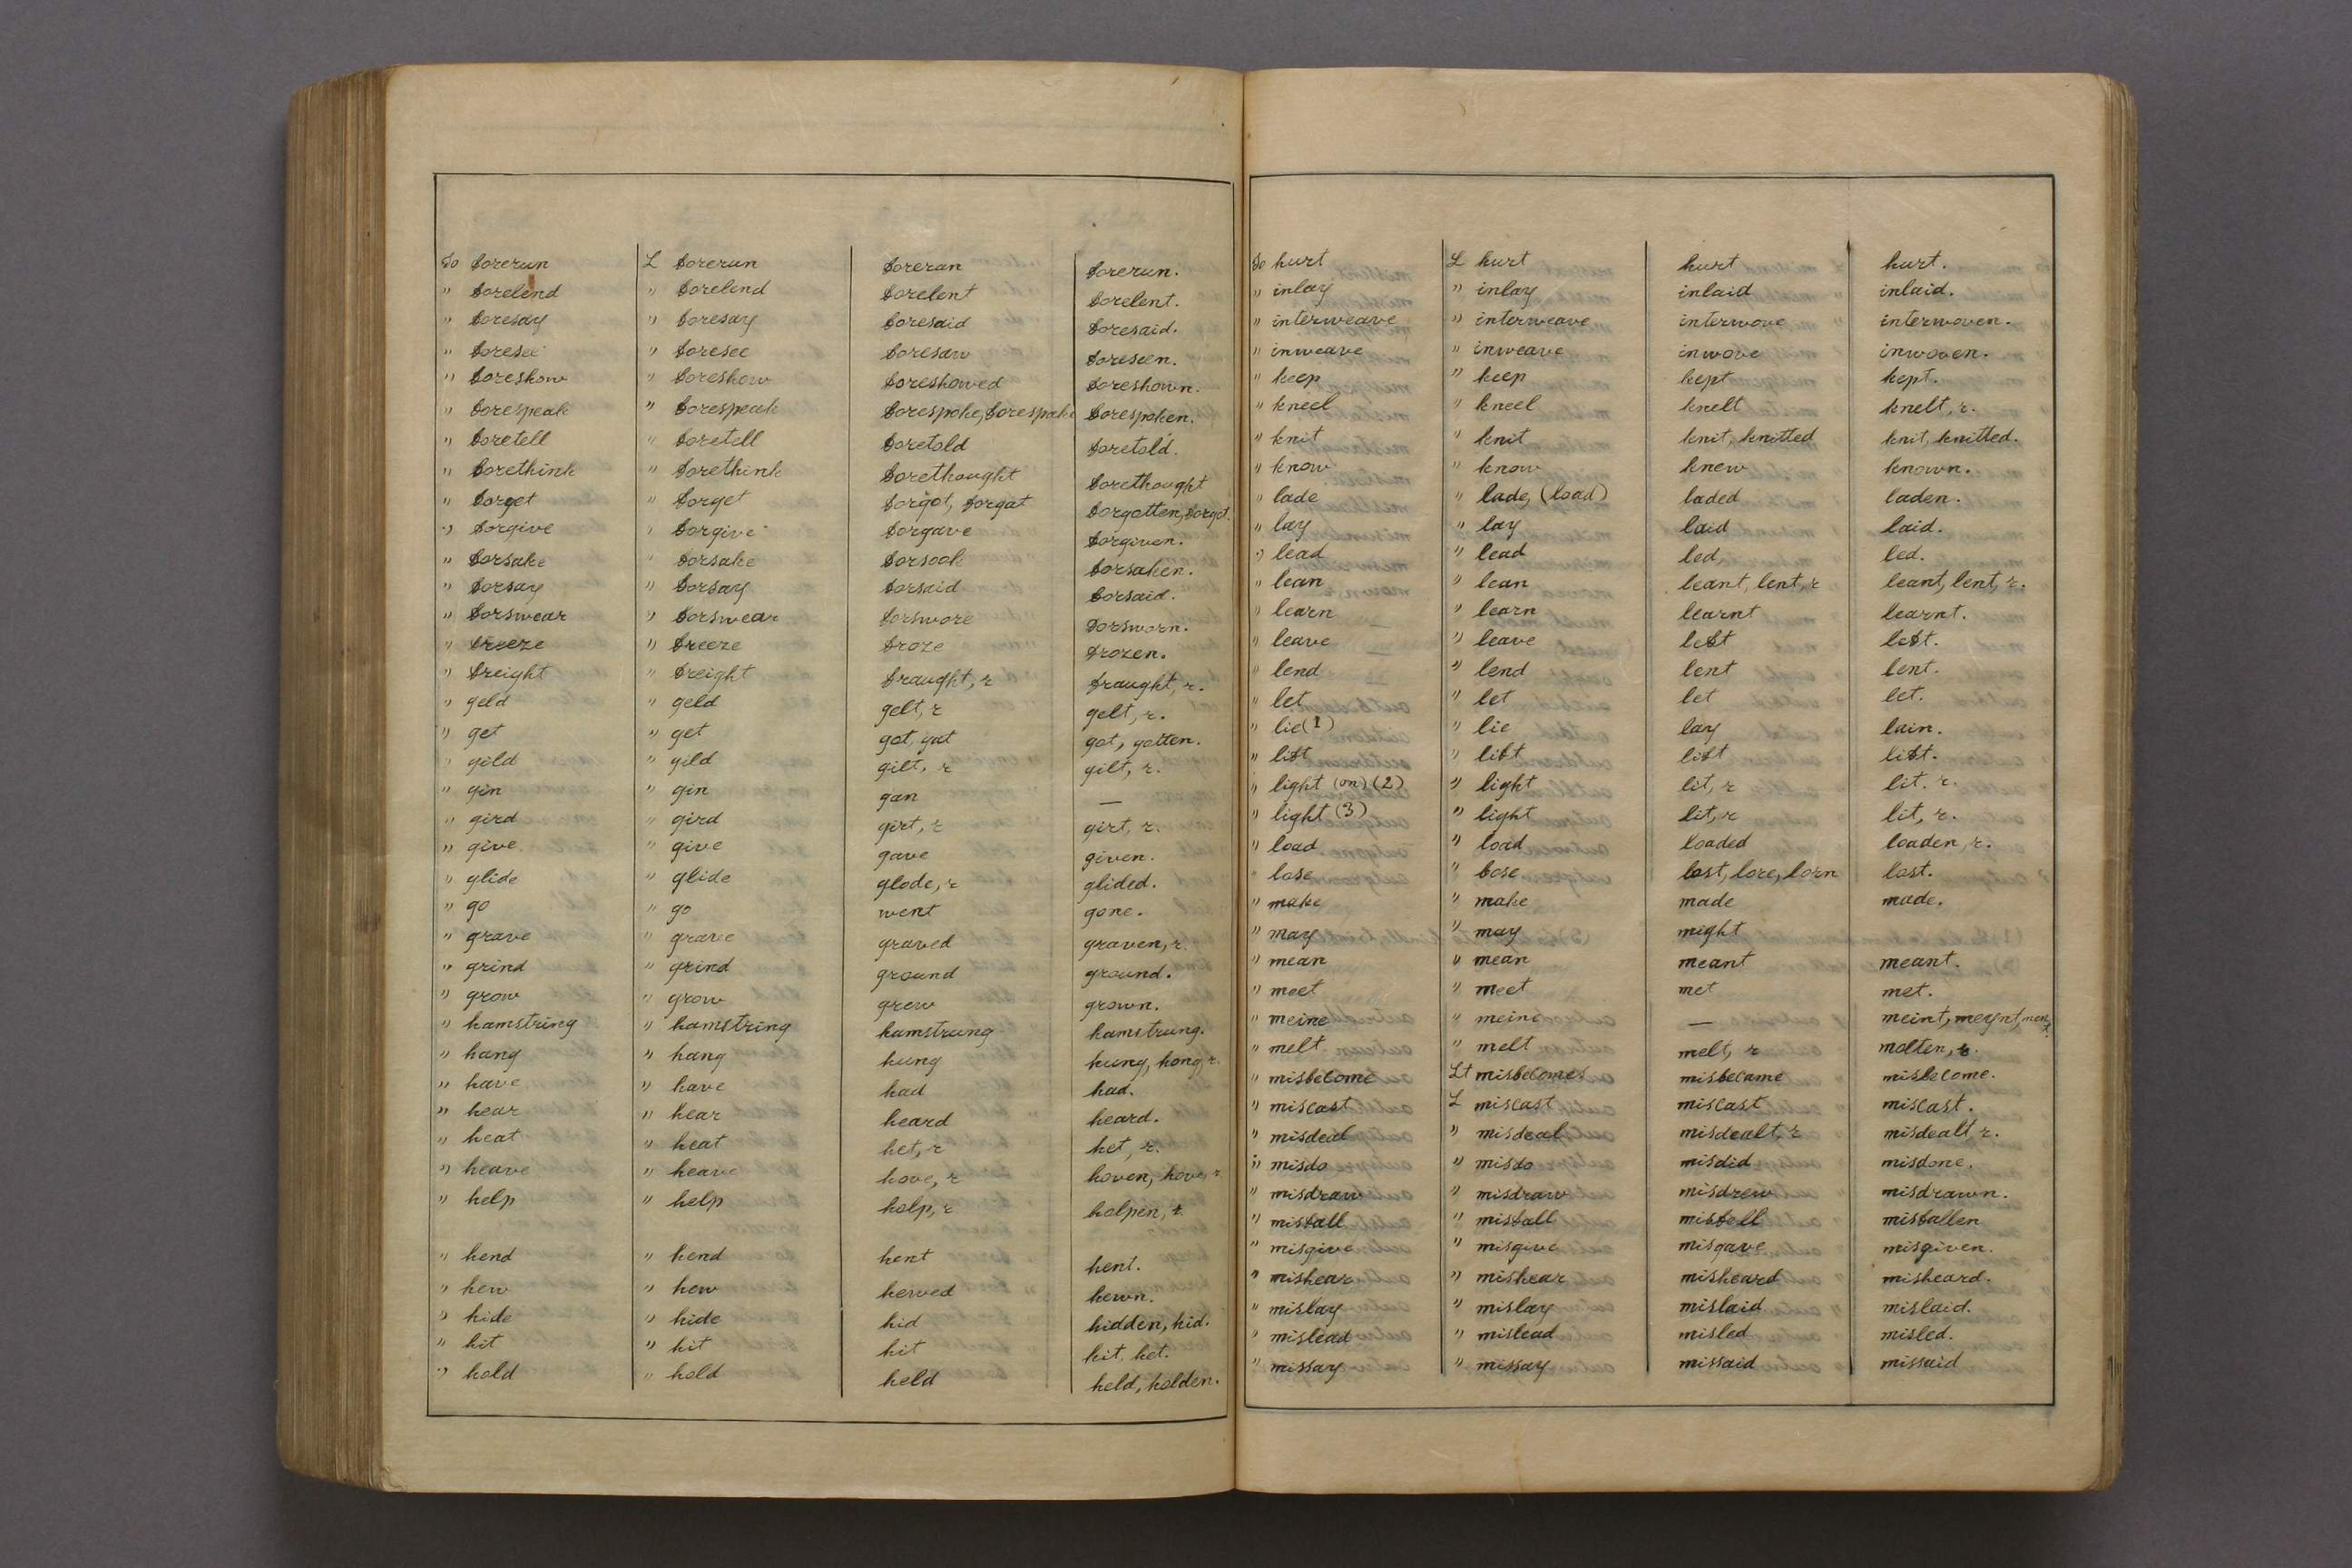 To forerun I forerun foreran forerun.
" forelend " forelend forelent forelent.
" foresay " foresay foresaid foresaid.
" foresee " foresee foresaw foreseen.
" foreshow " foreshow foreshowed foreshown.
" forespeak " forespeak forespoke, forespake forespoken.
" foretell " foretell foretold foretold.
" forethink " forethink forethought forethought
" forget " forget forgot, forgat forgotten, forgot.
" forgive " forgive forgave forgiven.
" forsake " forsake forsook forsaken.
" forsay " forsay forsaid forsaid.
" forswear " forswear forswore forsworn.
" freeze " freeze froze frozen.
" freight " freight fraught, r fraught, r.
" geld " geld gelt, r gelt, r.
" get " get got, gat got, gotten.
" gild " gild gilt, r gilt, r.
" gin " gin gan —
" gird " gird girt, r girt, r.
" give " give gave given.
" glide " glide glode, r glided.
" go " go went gone.
" grave " grave graved graven, r.
" grind " grind ground ground.
" grow " grow grew grown.
" hamstring " hamstring hamstrung hamstrung.
" hang " hang hung hung, hong, r.
" have " have had had.
" hear " hear heard heard.
" heat " heat het, r het, r.
" heave " heave hove, r hoven, hove, r
" help " help holp, r holpen, r.
" hend " hend hent hent.
" hew " hew hewed hewn.
" hide " hide hid hidden, hid.
" hit " hit hit hit, het.
" hold " hold held held, holden.
To hurt I hurt hurt hurt.
" inlay " inlay inlaid inlaid.
" interweave " interweave interwove interwoven.
" inweave " inweave inwove inwoven.
" keep " keep kept kept.
" kneel " kneel knelt knelt, r.
" knit " knit knit, knitted knit, knitted.
" know " know knew known.
" lade " lade, (load) laded laden.
" lay " lay laid laid.
" lead " lead led, led.
" lean " lean leant, lent, r leant, lent, r.
" learn " learn learnt learnt.
" leave " leave left left.
" lend " lend lent lent.
" let " let let let.
" lie (1) " lie lay lain.
" lift " lift lift lift.
" light (on) (2) " light lit, r lit. r.
" light (3) " light lit, r lit, r.
" load " load loaded loaden, r.
" lose " lose lost, lore, lorn lost.
" make " make made made.
" may " may might
" mean " mean meant meant.
" meet " meet met met.
" meine " meine — meint, meynt, ment.
" melt " melt melt, r molten, r.
" misbecome It misbecomes misbecame misbecome.
" miscast I miscast miscast miscast.
" misdeal " misdeal misdealt, r misdealt, r.
" misdo " misdo misdid misdone.
" misdraw " misdraw misdrew misdrawn.
" misfall " misfall misfell misfallen
" misgive " misgive misgave misgiven.
" mishear " mishear misheard misheard.
" mislay " mislay mislaid mislaid.
" mislead " mislead misled misled.
" missay " missay missaid missaid